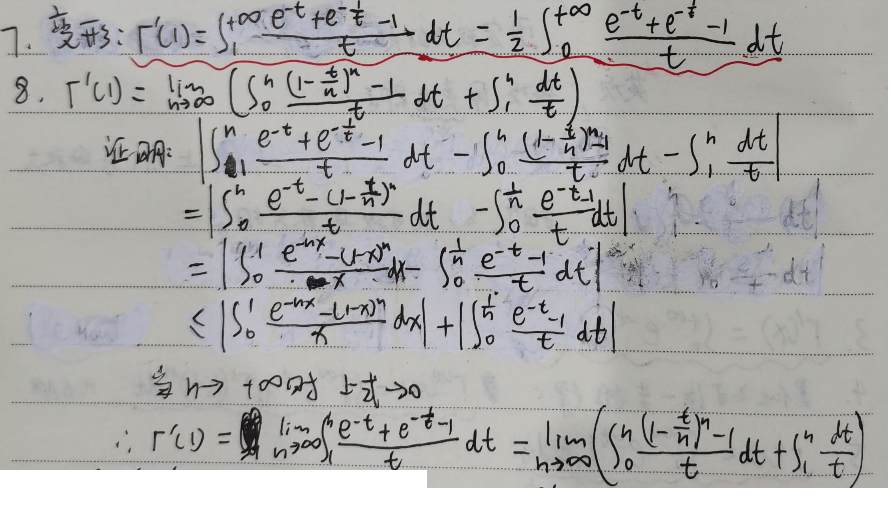 7. 变形: Γ'(1) = ∫₁^{+∞} (e^{-t} + e^{-1/t} - 1)/t dt = 1/2 ∫₀^{+∞} (e^{-t} + e^{-1/t} - 1)/t dt
8. Γ'(1) = lim_{n→∞} (∫₀^n ((1 - t/n)^n - 1)/t dt + ∫₁^n dt/t)
证明: |∫₁^n (e^{-t} + e^{-1/t} - 1)/t dt - ∫₀^n ((1 - t/n)^n - 1)/t dt - ∫₁^n dt/t|
= |∫₀^n (e^{-t} - (1 - t/n)^n)/t dt - ∫₀^{1/n} (e^{-t} - 1)/t dt|
= |∫₀^1 (e^{-nx} - (1-x)^n)/x dx - ∫₀^{1/n} (e^{-t} - 1)/t dt|
≤ |∫₀^1 (e^{-nx} - (1-x)^n)/x dx| + |∫₀^{1/n} (e^{-t} - 1)/t dt|
当 n → +∞时 上式→0
∴ Γ'(1) = lim_{n→∞} ∫₁^n (e^{-t} + e^{-1/t} - 1)/t dt = lim_{n→∞} (∫₀^n ((1 - t/n)^n - 1)/t dt + ∫₁^n dt/t)